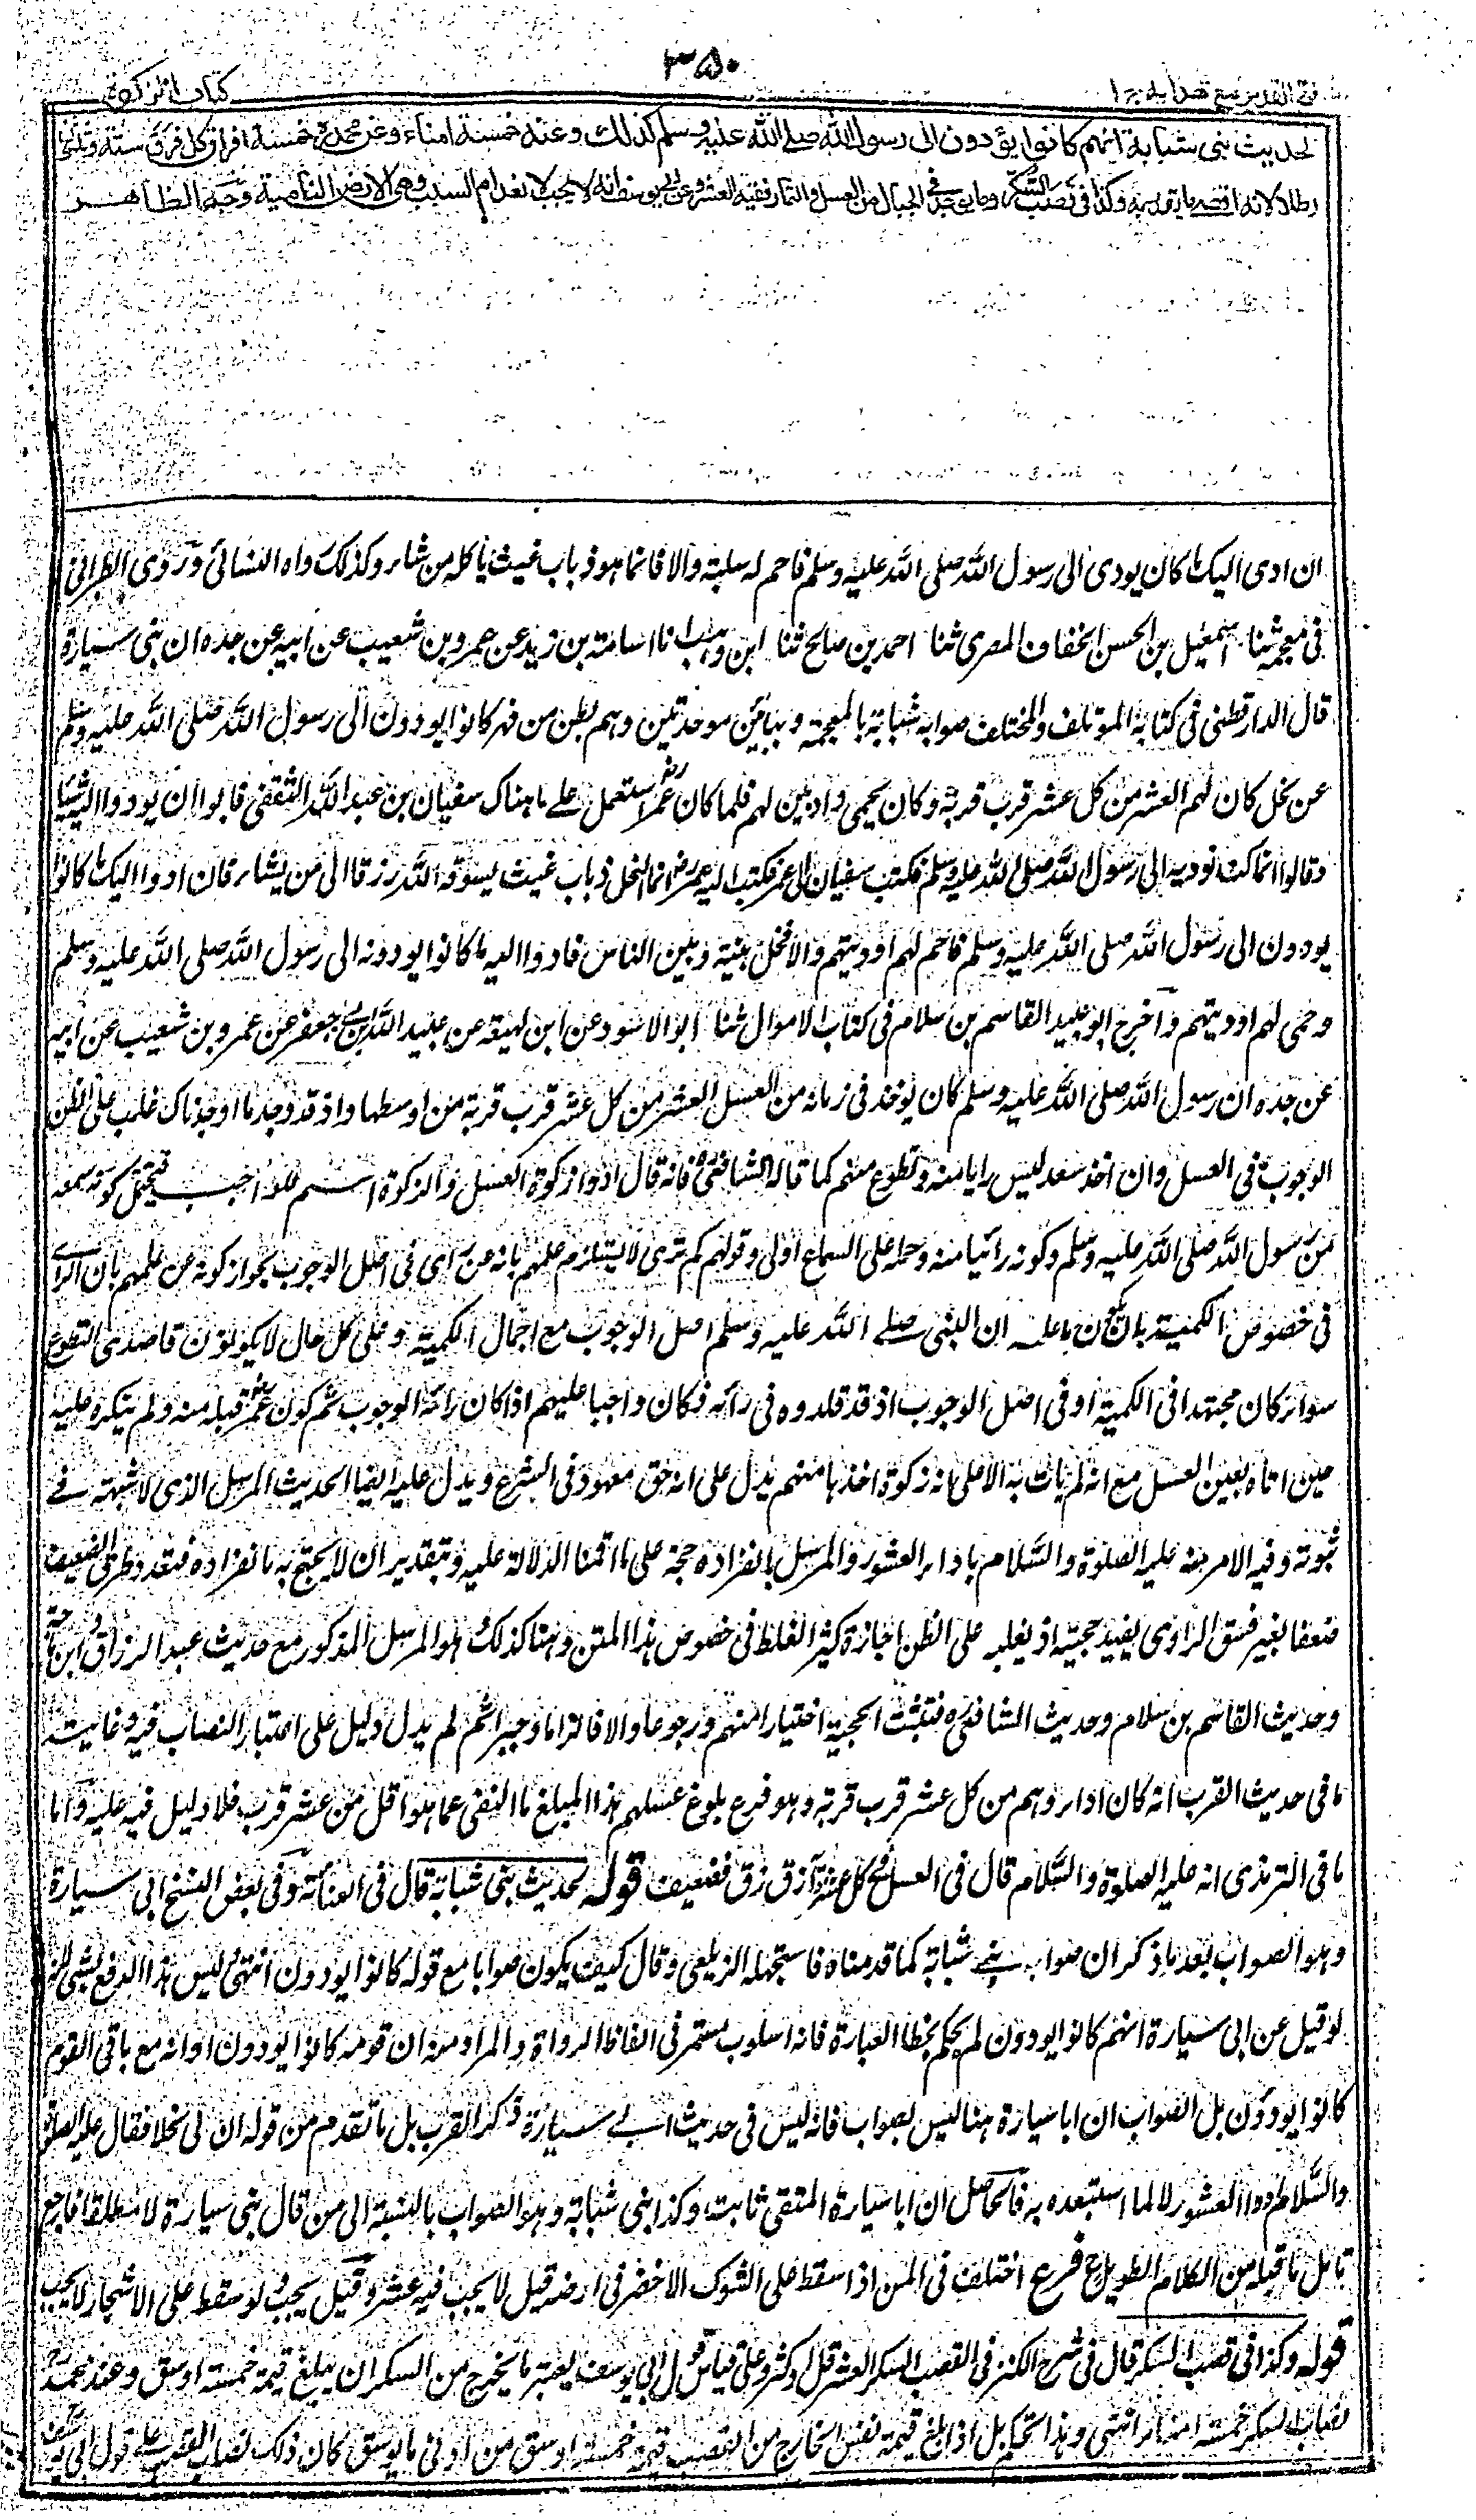 ۳۵۰
فتح القدير مع هدايه ج ۱
كتاب الزكوة
لحديث بنى شبابة انهم كانوا يؤدون الى رسول الله صلے الله عليه وسلم كذلك وعنه خمسة امناء وعن محمد رح خمسة افراق كل فرق ستة وثلثون
رطلا لانه اقصى ما يقدر به وكذا فى قصب السكر وما يوجد فى الجبال من العسل والثمار ففيه العشر وعن ابى يوسف انه لا يجب لانعدام السبب وهى الارض النامية وجه الظاهر
ان ادى اليك ما كان يودى الى رسول الله صلى الله عليه وسلم فاحم له سلبة والا فانما هو ذباب غيث ياكله من شاء وكذلك رواه النسائى وروى الطبرانى
فى معجمه ثنا اسمعيل بن الحسن الخفاف المصرى ثنا احمد بن صالح ثنا ابن وهب انا اسامة بن زيد عن عمرو بن شعيب عن ابيه عن جده ان بنى سيارة
قال الدارقطنى فى كتابه المؤتلف والمختلف صوابه شبابة بالمعجمة وببائين موحدتين وهم بطن من فهر كانوا يودون الى رسول الله صلى الله عليه وسلم
عن نحل كان لهم العشر من كل عشر قرب قربة وكان يحمى واديين لهم فلما كان عمر رض استعمل على ما هناك سفيان بن عبد الله الثقفى فابوا ان يودوا اليه شيئا
وقالوا انما كنا نوديه الى رسول الله صلى الله عليه وسلم فكتب سفيان الى عمر فكتب اليه عمر رض انما النحل ذباب غيث يسوقه الله رزقا الى من يشاء فان ادوا اليك ما كانوا
يودون الى رسول الله صلى الله عليه وسلم فاحم لهم اوديتهم والا فخل بينه وبين الناس فادوا اليه ما كانوا يودونه الى رسول الله صلى الله عليه وسلم
وحمى لهم اوديتهم واخرج ابو عبيد القاسم بن سلام فى كتاب الاموال ثنا ابو الاسود عن ابن لهيعة عن عبيد الله بن ابى جعفر عن عمرو بن شعيب عن ابيه
عن جده ان رسول الله صلى الله عليه وسلم كان يوخذ فى زمانه من العسل العشر من كل عشر قرب قربة من اوسطها واذ قد وجد ما اوجدناك غلب على الظن
الوجوب فى العسل وان اخذ سعد ليس رايا منه وتطوع منهم كما قاله الشافعى رح فانه قال ادوا زكوة العسل والزكوة اسم للواجب فيحتمل كونه سمعه
من رسول الله صلى الله عليه وسلم وكونه رائيا منه وحمله على السماع اولى وقولهم كم ترى لا يستلزم علمهم بانه عن راى فى اصل الوجوب لجواز كونه عن علمهم بان الراى
فى خصوص الكمية بان يكون ما علمه ان النبى صلے الله عليه وسلم اصل الوجوب مع اجمال الكمية وعلى كل حال لا يكونون قاصدى التطوع
سواء كان مجتهدا فى الكمية او فى اصل الوجوب اذ قد قلدوه فى رأيه فكان واجبا عليهم اذا كان رائه الوجوب ثم كون عمر رض قبله منه ولم ينكره عليه
حين اتاه بعين العسل مع انه لم يات به الا على انه زكوة اخذها منهم يدل على انه حق معهود فى الشرع ويدل عليه ايضا الحديث المرسل الذى لا شبهة فے
ثبوته وفيه الامر منه عليه الصلوة والسلام باداء العشور والمرسل بانفراده حجة على ما اقمنا الدلالة عليه وبتقدير ان لا يحتج به بانفراده فتعدد طرق الضعيف
ضعفا بغير فسق الراوى يفيد حجيته اذ يغلب على الظن اجازة كثير الغلط فى خصوص هذا المتن وهنا كذلك وهو المرسل المذكور مع حديث عبد الرزاق وابن ماجة
وحديث القاسم بن سلام وحديث الشافعى رح فتثبت الحجية اختيارا منهم ورجوعا والا فالزاما وجبرا ثم لم يدل دليل على اعتبار النصاب فيه وغاية
ما فى حديث القرب انه كان اداؤهم من كل عشر قرب قربة وهو فرع بلوغ عسلهم هذا المبلغ اما النفى عما هو اقل من عشر قرب فلا دليل فيه عليه واما
ما فى الترمذى انه عليه الصلوة والسلام قال فى العسل فى كل عشرة ازق زق فضعيف قوله لحديث بنى شبابة قال فى العناية وفى بعض النسخ ابى سيارة
وهو الصواب بعد ما ذكر ان صوابه بنى شبابة كما قدمناه فاستجهله الزيلعى وقال كيف يكون صوابا مع قوله كانوا يودون انتهى وليس هذا الدفع بشئ لانه
لو قيل عن ابى سيارة انهم كانوا يودون لم يحكم بخطا العبارة فانه اسلوب مستمر فى الفاظ الرواة والمراد منه ان قومه كانوا يودون او انه مع باقى القوم
كانوا يودون بل الصواب ان ابا سيارة هنا ليس بصواب فانه ليس فى حديث ابى سيارة ذكر القرب بل ما تقدم من قوله ان لى نحلا فقال عليه الصلوة
والسلام ادوا العشور لا لما استبعده به فالحاصل ان ابا سيارة المتقى ثابت وكذا بنى شبابة وهو الصواب بالنسبة الى من قال بنى سيارة لا مطلقا فارجع
تامل ما قبله من الكلام الطويل ع فرع اختلف فى المن اذا سقط على الشوك الاخضر فى ارضه قيل لا يجب فيه عشر وقيل يجب ولو سقط على الاشجار لا يجب
قوله وكذا فى قصب السكر قال فى شرح الكنز فى القصب السكر العشر قل او كثر وعلى قياس قول ابى يوسف يعتبر ما يخرج من السكر ان يبلغ قيمة خمسة اوسق وعند محمد رح
نصاب السكر خمسة امناء انتهى وهذا تحكم بل اذا بلغ قيمة نفس الخارج من القصب قيمة خمسة اوسق من ادنى ما يوسق كان ذلك نصاب القصب على قول ابى يوسف